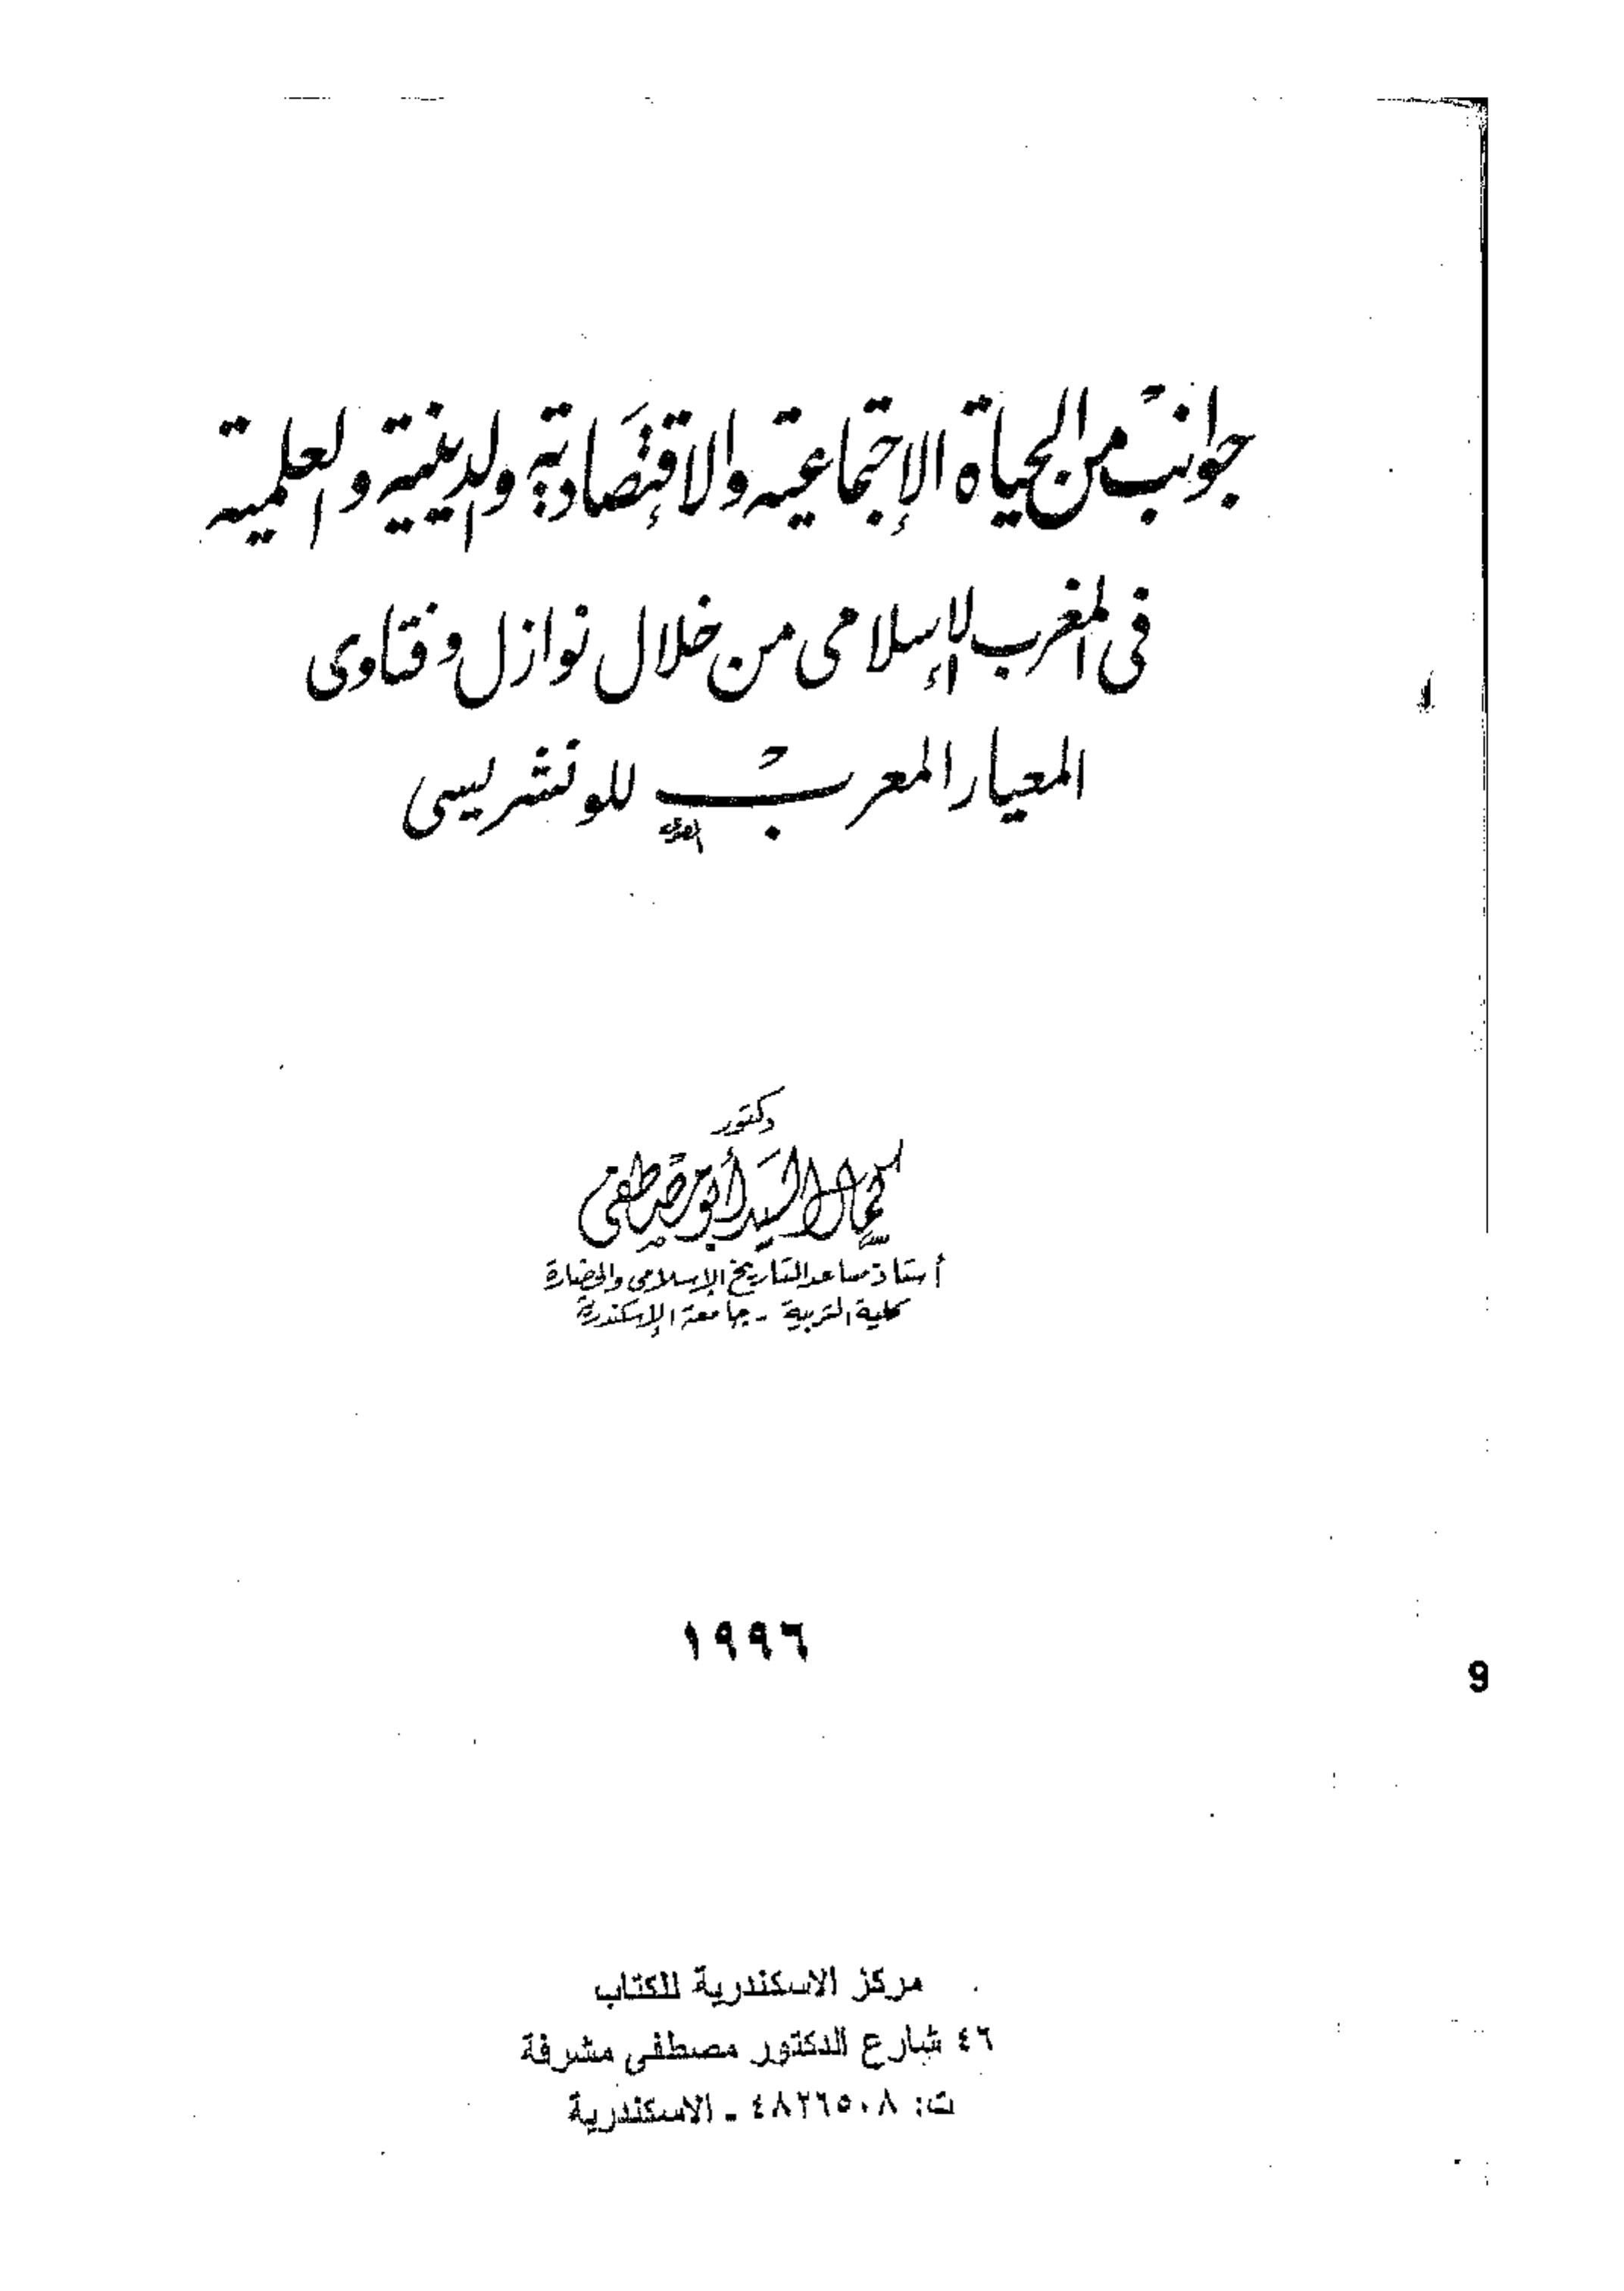 جوانب من الحياة الإجتماعية والإقتصادية والدينية والعلمية
فى المغرب الإسلامى من خلال نوازل وفتاوى
المعيار المعرب للونشريسى
دكتور
كمال السيد أبو مصطفى
أستاذ مساعد التاريخ الإسلامى والحضارة
كلية التربية - جامعة الإسكندرية
١٩٩٦
9
مركز الاسكندرية للكتاب
٤٦ شارع الدكتور مصطفى مشرفة
ت: ٤٨٢٦٥٠٨ - الاسكندرية